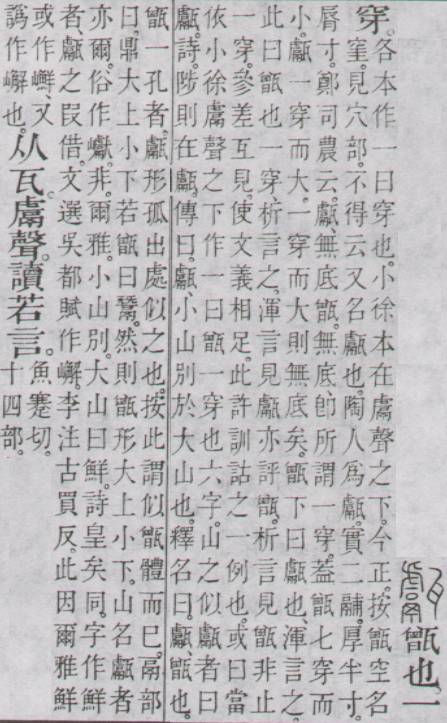 甗甑也一
穿。各本作一曰穿也。小徐本在鬳聲之下。今正。按甑空名
窐。見穴部。不得云又名甗也。陶人爲甗。實二鬴。厚半寸。
脣寸。鄭司農云。甗、無底甑。無底、卽所謂一穿。葢甑七穿而
小。甗一穿而大。一穿而大則無底矣。甑下曰甗也。渾言之。
此曰甑也一穿。析言之。渾言見甗亦評甑。析言見甑非止
一穿。參差互見。使文義相足。此許訓詁之一例也。或曰當
依小徐鬳聲之下作一曰甑一穿也六字。山之似甗者曰
甗。詩。陟則在甗。傳曰。甗、小山別於大山也。釋名曰。甗、甑也。
甑一孔者。甗形孤出處似之也。按此謂似甑體而已。鬲部
曰。鼎大上小下若甑曰鬵。然則甑形大上小下。山名甗者
亦爾。俗作巘、非。爾雅。小山別大山曰鮮。詩皇矣同。字作鮮
者、甗之叚借。文選吳都賦作嶰。李注古買反。此因爾雅鮮
或作、又
譌作嶰也。从瓦。鬳聲。讀若言。魚蹇切。
十四部。